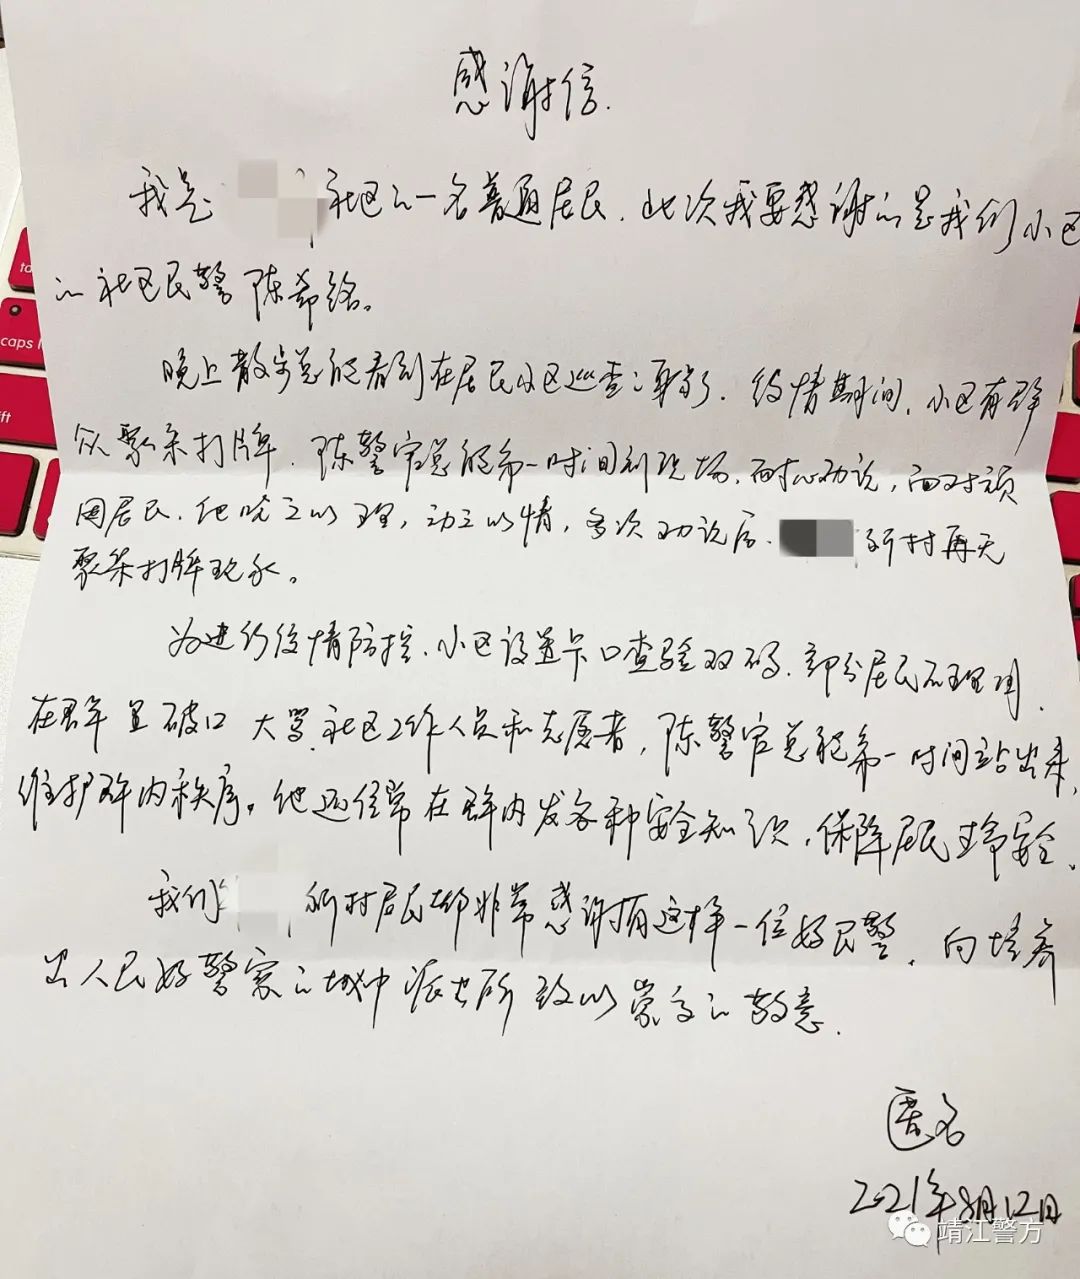 感谢信.
我是 社区的一名普通居民.此次我要感谢的是我们小区
的社区民警陈希
晚上散步总能看到在居民小区巡查的身影.疫情期间,小区有群
众聚众打牌.陈警官总能第一时间到现场,耐心劝说,面对顽
固居民.他晓之以理,动之以情,多次劝说后. 新村再无
聚众打牌现象。
为进行疫情防控.小区设置卡口查验双码.部分居民不理
在群里破口大骂社区工作人员和志愿者,陈警官总能第一时间站出来,
维护群内秩序。他还经常在群内发各种安全知识,保障居民生命安全.
我们 新村居民都非常感谢有这样一位好民警.向培养
出人民好警察的城中派出所致以崇高的敬意.
匿名
2021年8月12日
tab
caps l
ift
靖江警方